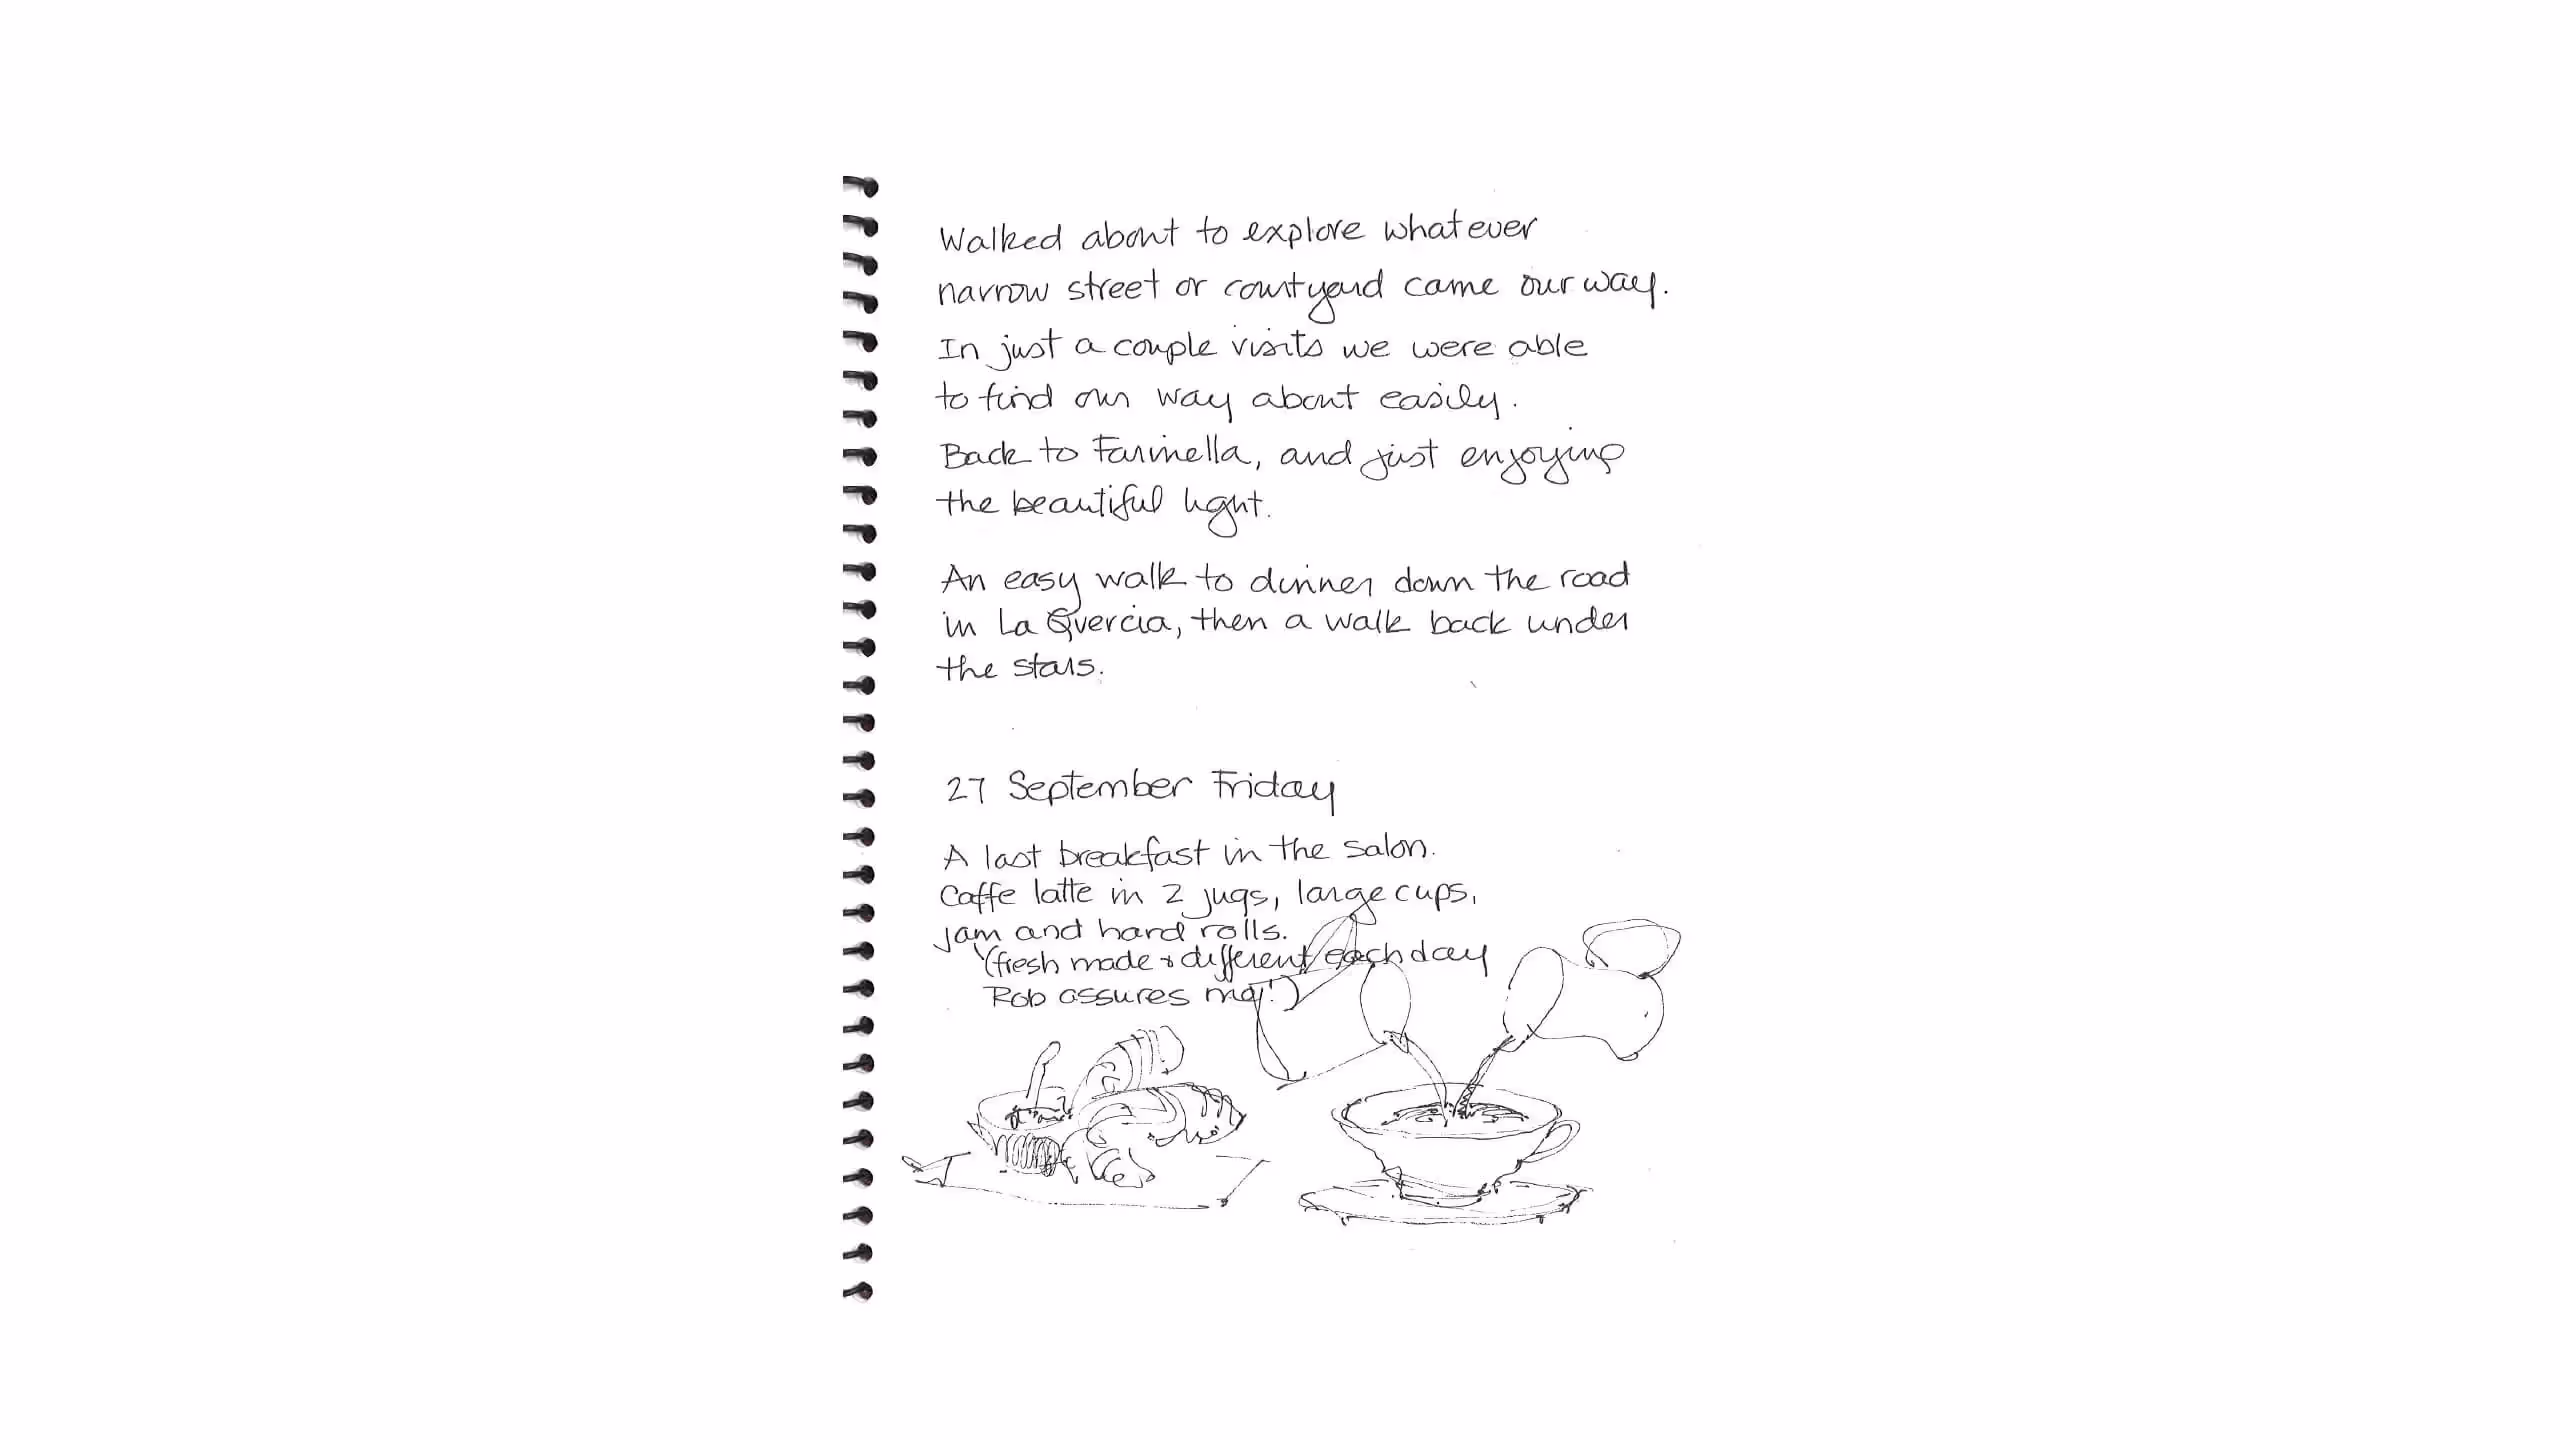 Walked about to explore whatever
narrow street or courtyard came our way.
In just a couple visits we were able
to find our way about easily.
Back to Farinella, and just enjoying
the beautiful light.
An easy walk to dinner down the road
in La Quercia, then a walk back under
the stars.
27 September Friday
A last breakfast in the salon.
Caffe latte in 2 jugs, large cups,
jam and hard rolls.
(fresh made + different each day
Rob assures me!)